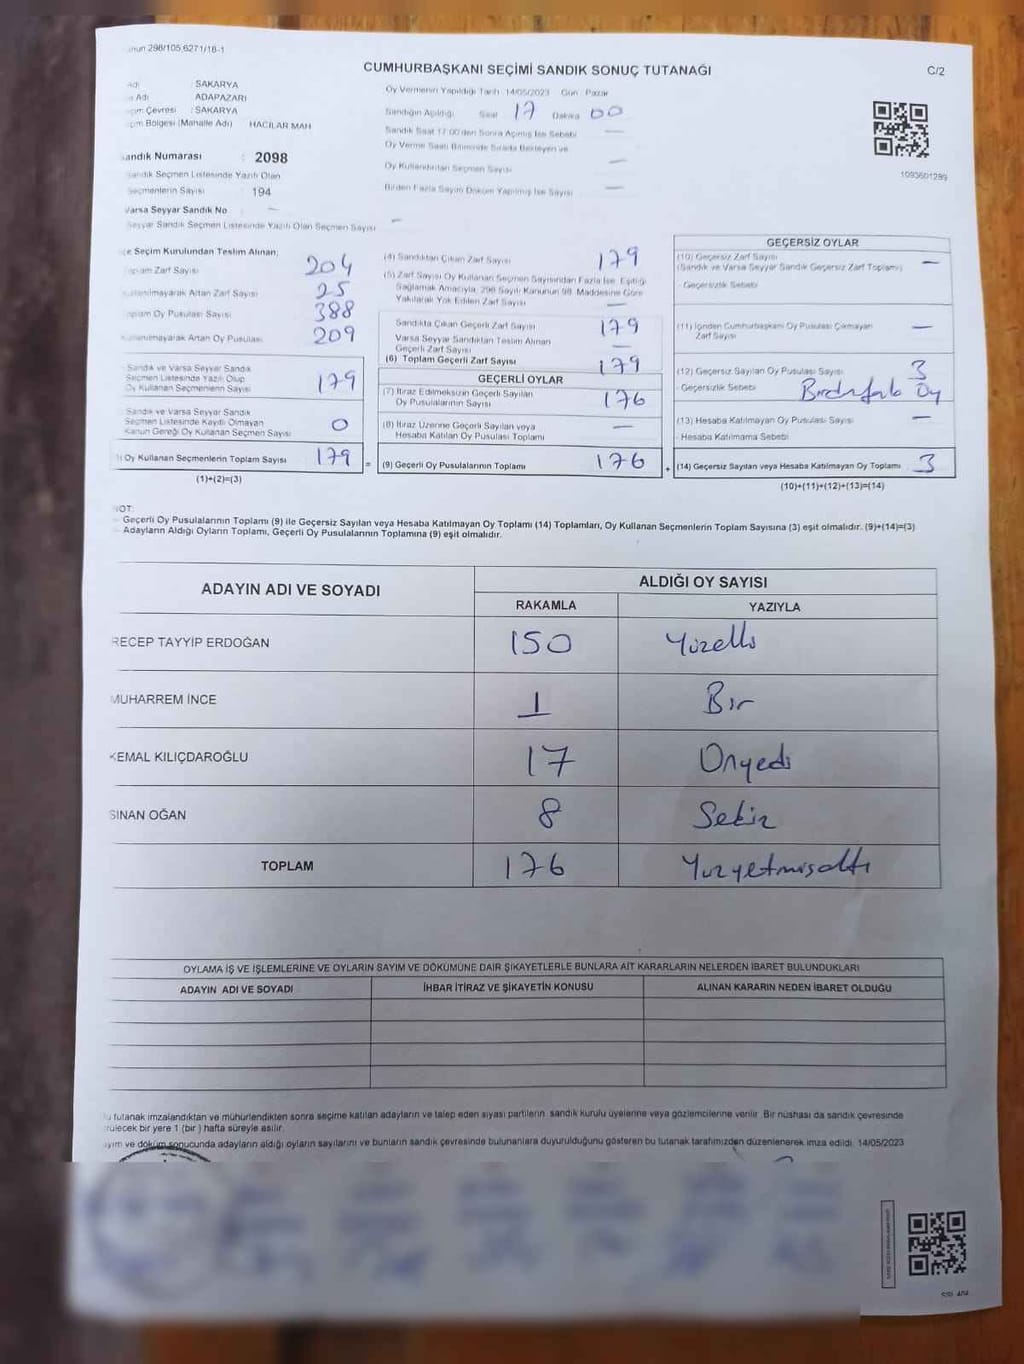 298/105,6271/18-1
CUMHURBAŞKANI SEÇİMİ SANDIK SONUÇ TUTANAĞI
C/2
Adı : SAKARYA
Adı ADAPAZARI
Çevresi : SAKARYA
Bölgesi (Mahalle Adı) HACILAR MAH
Sandık Numarası : 2098
Sandık Seçmen Listesinde Yazılı Olan
Seçmenlerin Sayısı 194
Varsa Seyyar Sandık No : —
Seyyar Sandık Seçmen Listesinde Yazılı Olan Seçmen Sayısı —
Oy Vermenin Yapıldığı Tarih 14/05/2023 Gün : Pazar
Sandığın Açıldığı Saat 17 Dakika 00
Sandık Saat 17.00'den Sonra Açılmış İse Sebebi —
Oy Verme Saati Bitiminde Sırada Bekleyen ve
Oy Kullandırılan Seçmen Sayısı —
Birden Fazla Sayım Döküm Yapılmış İse Sayısı —
1093601289
Seçim Kurulundan Teslim Alınan;
Toplam Zarf Sayısı 204
Kullanılmayarak Artan Zarf Sayısı 25
Toplam Oy Pusulası Sayısı 388
Kullanılmayarak Artan Oy Pusulası 209
Sandık ve Varsa Seyyar Sandık
Seçmen Listesinde Yazılı Olup
Oy Kullanan Seçmenlerin Sayısı 179
Sandık ve Varsa Seyyar Sandık
Seçmen Listesinde Kayıtlı Olmayan
Kanun Gereği Oy Kullanan Seçmen Sayısı 0
Oy Kullanan Seçmenlerin Toplam Sayısı 179 =
(1)+(2)=(3)
(4) Sandıktan Çıkan Zarf Sayısı 179
(5) Zarf Sayısı Oy Kullanan Seçmen Sayısından Fazla İse, Eşitliği
Sağlamak Amacıyla, 298 Sayılı Kanunun 98. Maddesine Göre
Yakılarak Yok Edilen Zarf Sayısı —
Sandıkta Çıkan Geçerli Zarf Sayısı 179
Varsa Seyyar Sandıktan Teslim Alınan
Geçerli Zarf Sayısı —
(6) Toplam Geçerli Zarf Sayısı 179
GEÇERLİ OYLAR
(7) İtiraz Edilmeksizin Geçerli Sayılan
Oy Pusulalarının Sayısı 176
(8) İtiraz Üzerine Geçerli Sayılan veya
Hesaba Katılan Oy Pusulası Toplamı —
(9) Geçerli Oy Pusulalarının Toplamı 176 +
GEÇERSİZ OYLAR
(10) Geçersiz Zarf Sayısı —
(Sandık ve Varsa Seyyar Sandık Geçersiz Zarf Toplamı)
- Geçersizlik Sebebi
(11) İçinden Cumhurbaşkanı Oy Pusulası Çıkmayan
Zarf Sayısı —
(12) Geçersiz Sayılan Oy Pusulası Sayısı 3
- Geçersizlik Sebebi Birdnfazla Oy
(13) Hesaba Katılmayan Oy Pusulası Sayısı —
- Hesaba Katılmama Sebebi
(14) Geçersiz Sayılan veya Hesaba Katılmayan Oy Toplamı 3
(10)+(11)+(12)+(13)=(14)
NOT:
Geçerli Oy Pusulalarının Toplamı (9) ile Geçersiz Sayılan veya Hesaba Katılmayan Oy Toplamı (14) Toplamları, Oy Kullanan Seçmenlerin Toplam Sayısına (3) eşit olmalıdır. (9)+(14)=(3)
Adayların Aldığı Oyların Toplamı, Geçerli Oy Pusulalarının Toplamına (9) eşit olmalıdır.
ADAYIN ADI VE SOYADI ALDIĞI OY SAYISI
RAKAMLA YAZIYLA
RECEP TAYYİP ERDOĞAN 150 Yüzelli
MUHARREM İNCE 1 Bir
KEMAL KILIÇDAROĞLU 17 Onyedi
SİNAN OĞAN 8 Sekiz
TOPLAM 176 Yüzyetmişaltı
OYLAMA İŞ VE İŞLEMLERİNE VE OYLARIN SAYIM VE DÖKÜMÜNE DAİR ŞİKAYETLERLE BUNLARA AİT KARARLARIN NELERDEN İBARET BULUNDUKLARI
ADAYIN ADI VE SOYADI İHBAR İTİRAZ VE ŞİKAYETİN KONUSU ALINAN KARARIN NEDEN İBARET OLDUĞU
tutanak imzalandıktan ve mühürlendikten sonra seçime katılan adayların ve talep eden siyasi partilerin sandık kurulu üyelerine veya gözlemcilerine verilir. Bir nüshası da sandık çevresinde
bir yere 1 (bir) hafta süreyle asılır.
ve döküm sonucunda adayların aldığı oyların sayılarını ve bunların sandık çevresinde bulunanlara duyurulduğunu gösteren bu tutanak tarafımızdan düzenlenerek imza edildi. 14/05/2023